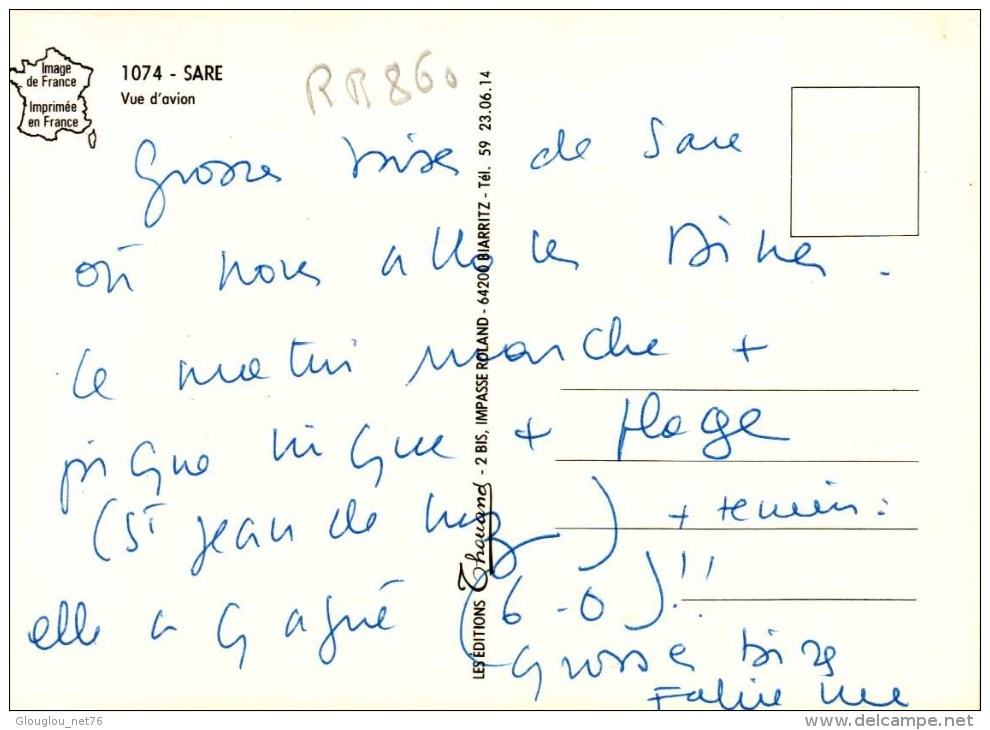 Image
de France
Imprimée
en France
1074 - SARE
Vue d'avion
RR860
LES ÉDITIONS Thouand - 2 BIS, IMPASSE ROLAND - 64200 BIARRITZ - Tél. 59 23.06.14
Grosses bises de Sare
où nous allons dîner.
Le matin marche +
pique nique + plage
(St Jean de Luz) + tennis :
elle a gagné (6-0)!!!
Grosses bises
Glouglou_net76
www.delcampe.net